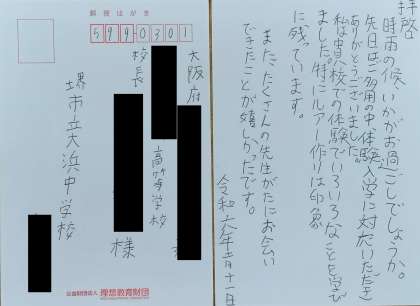 郵便はがき
5990301
大阪府
高等学校
校長
様
堺市立大浜中学校
公益財団法人 理想教育財団
拝啓
時雨の候、いかがお過ごしでしょうか。
先日はご多用の中体験入学に対応いただき
ありがとうございました。
私は貴校での体験でいろいろなことを学び
ました。特にルアー作りは印象
に残っています。
また、たくさんの先生がたにお会い
できたことが嬉しかったです。
令和六年 月十一日